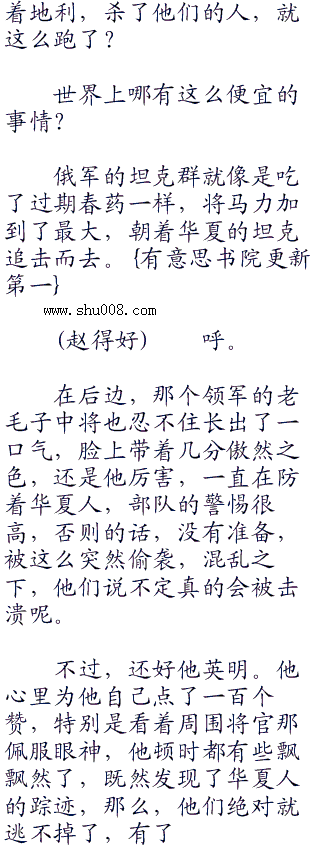 着地利，杀了他们的人，就
这么跑了？
世界上哪有这么便宜的
事情？
俄军的坦克群就像是吃
了过期春药一样，将马力加
到了最大，朝着华夏的坦克
追击而去。{有意思书院更新
第一}
www.shu008.com
(赵得好)  呼。
在后边，那个领军的老
毛子中将也忍不住长出了一
口气，脸上带着几分傲然之
色，还是他厉害，一直在防
着华夏人，部队的警惕很
高，否则的话，没有准备，
被这么突然偷袭，混乱之
下，他们说不定真的会被击
溃呢。
不过，还好他英明。他
心里为他自己点了一百个
赞，特别是看着周围将官那
佩服眼神，他顿时都有些飘
飘然了，既然发现了华夏人
的踪迹，那么，他们绝对就
逃不掉了，有了